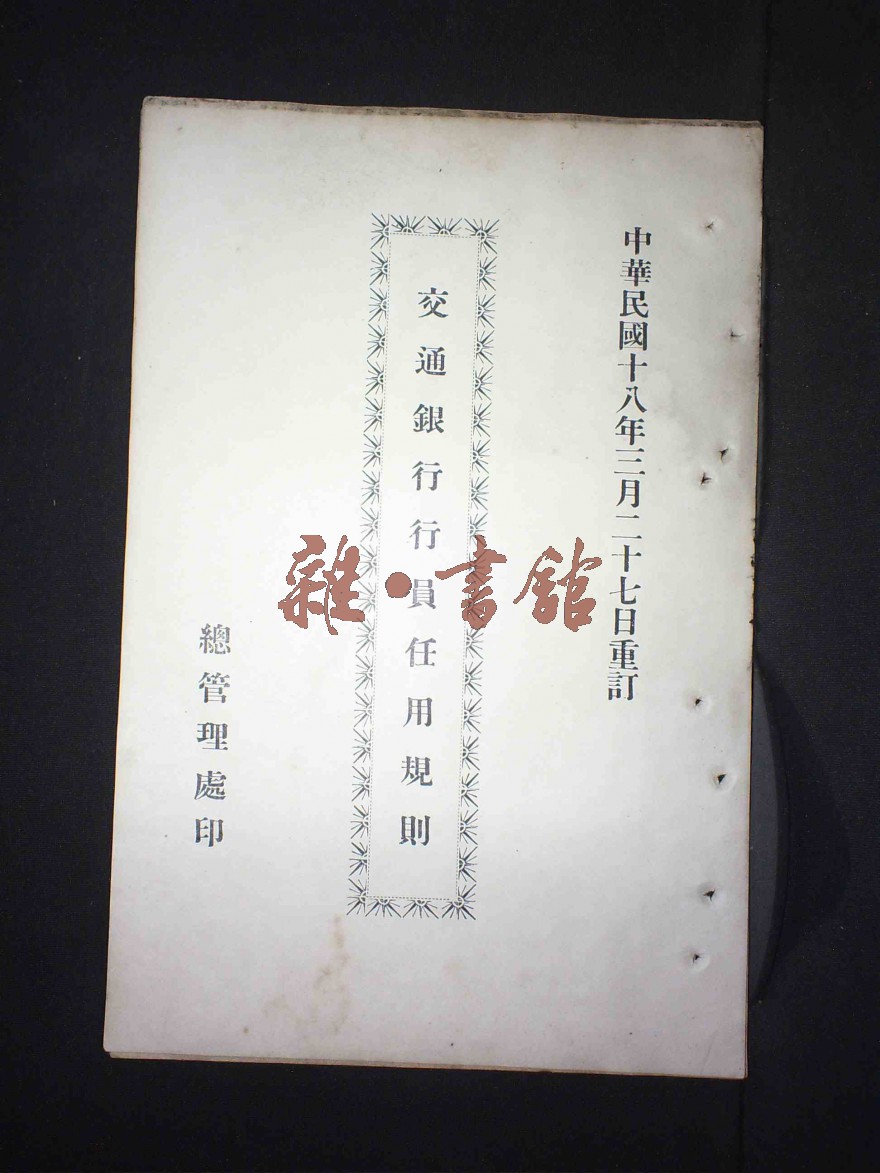 中華民國十八年三月二十七日重訂
交通銀行行員任用規則
總管理處印
雜·書館